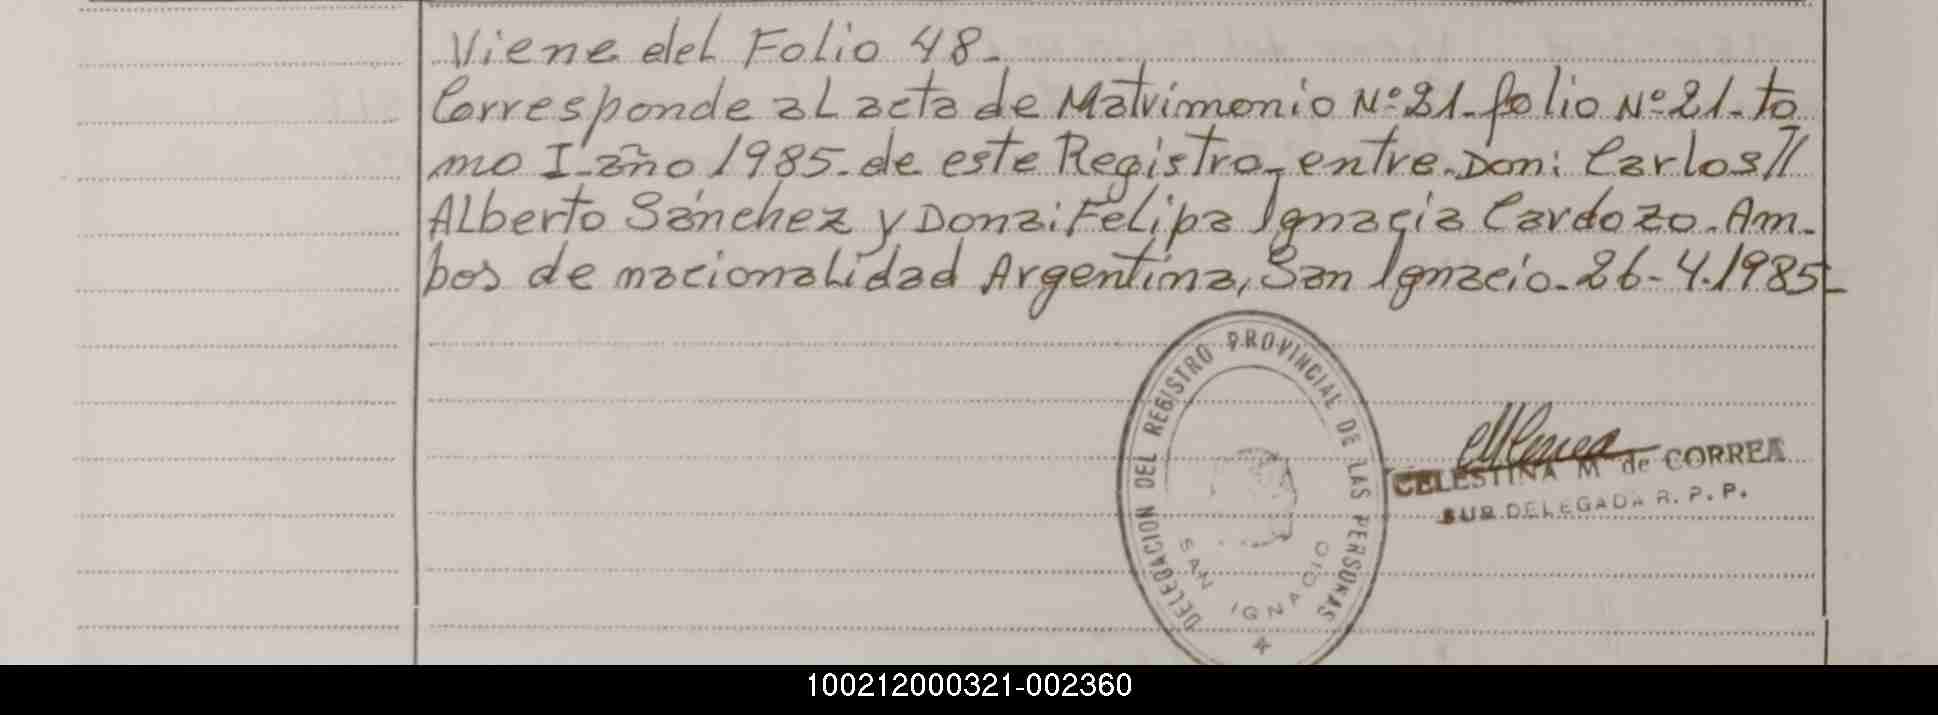 Viene del Folio 48-
Corresponde al acta de Matrimonio Nº 21-folio Nº 21-to
mo I-año 1985-de este Registro-entre-Don: Carlos//
Alberto Sánchez y Dona: Felipa Ignacia Cardozo-Am-
bos de nacionalidad Argentina, San Ignacio-26-4-1985-
DELEGACION DEL REGISTRO PROVINCIAL DE LAS PERSONAS
SAN IGNACIO
CELESTINA M de CORREA
SUB DELEGADA R. P. P.
100212000321-002360